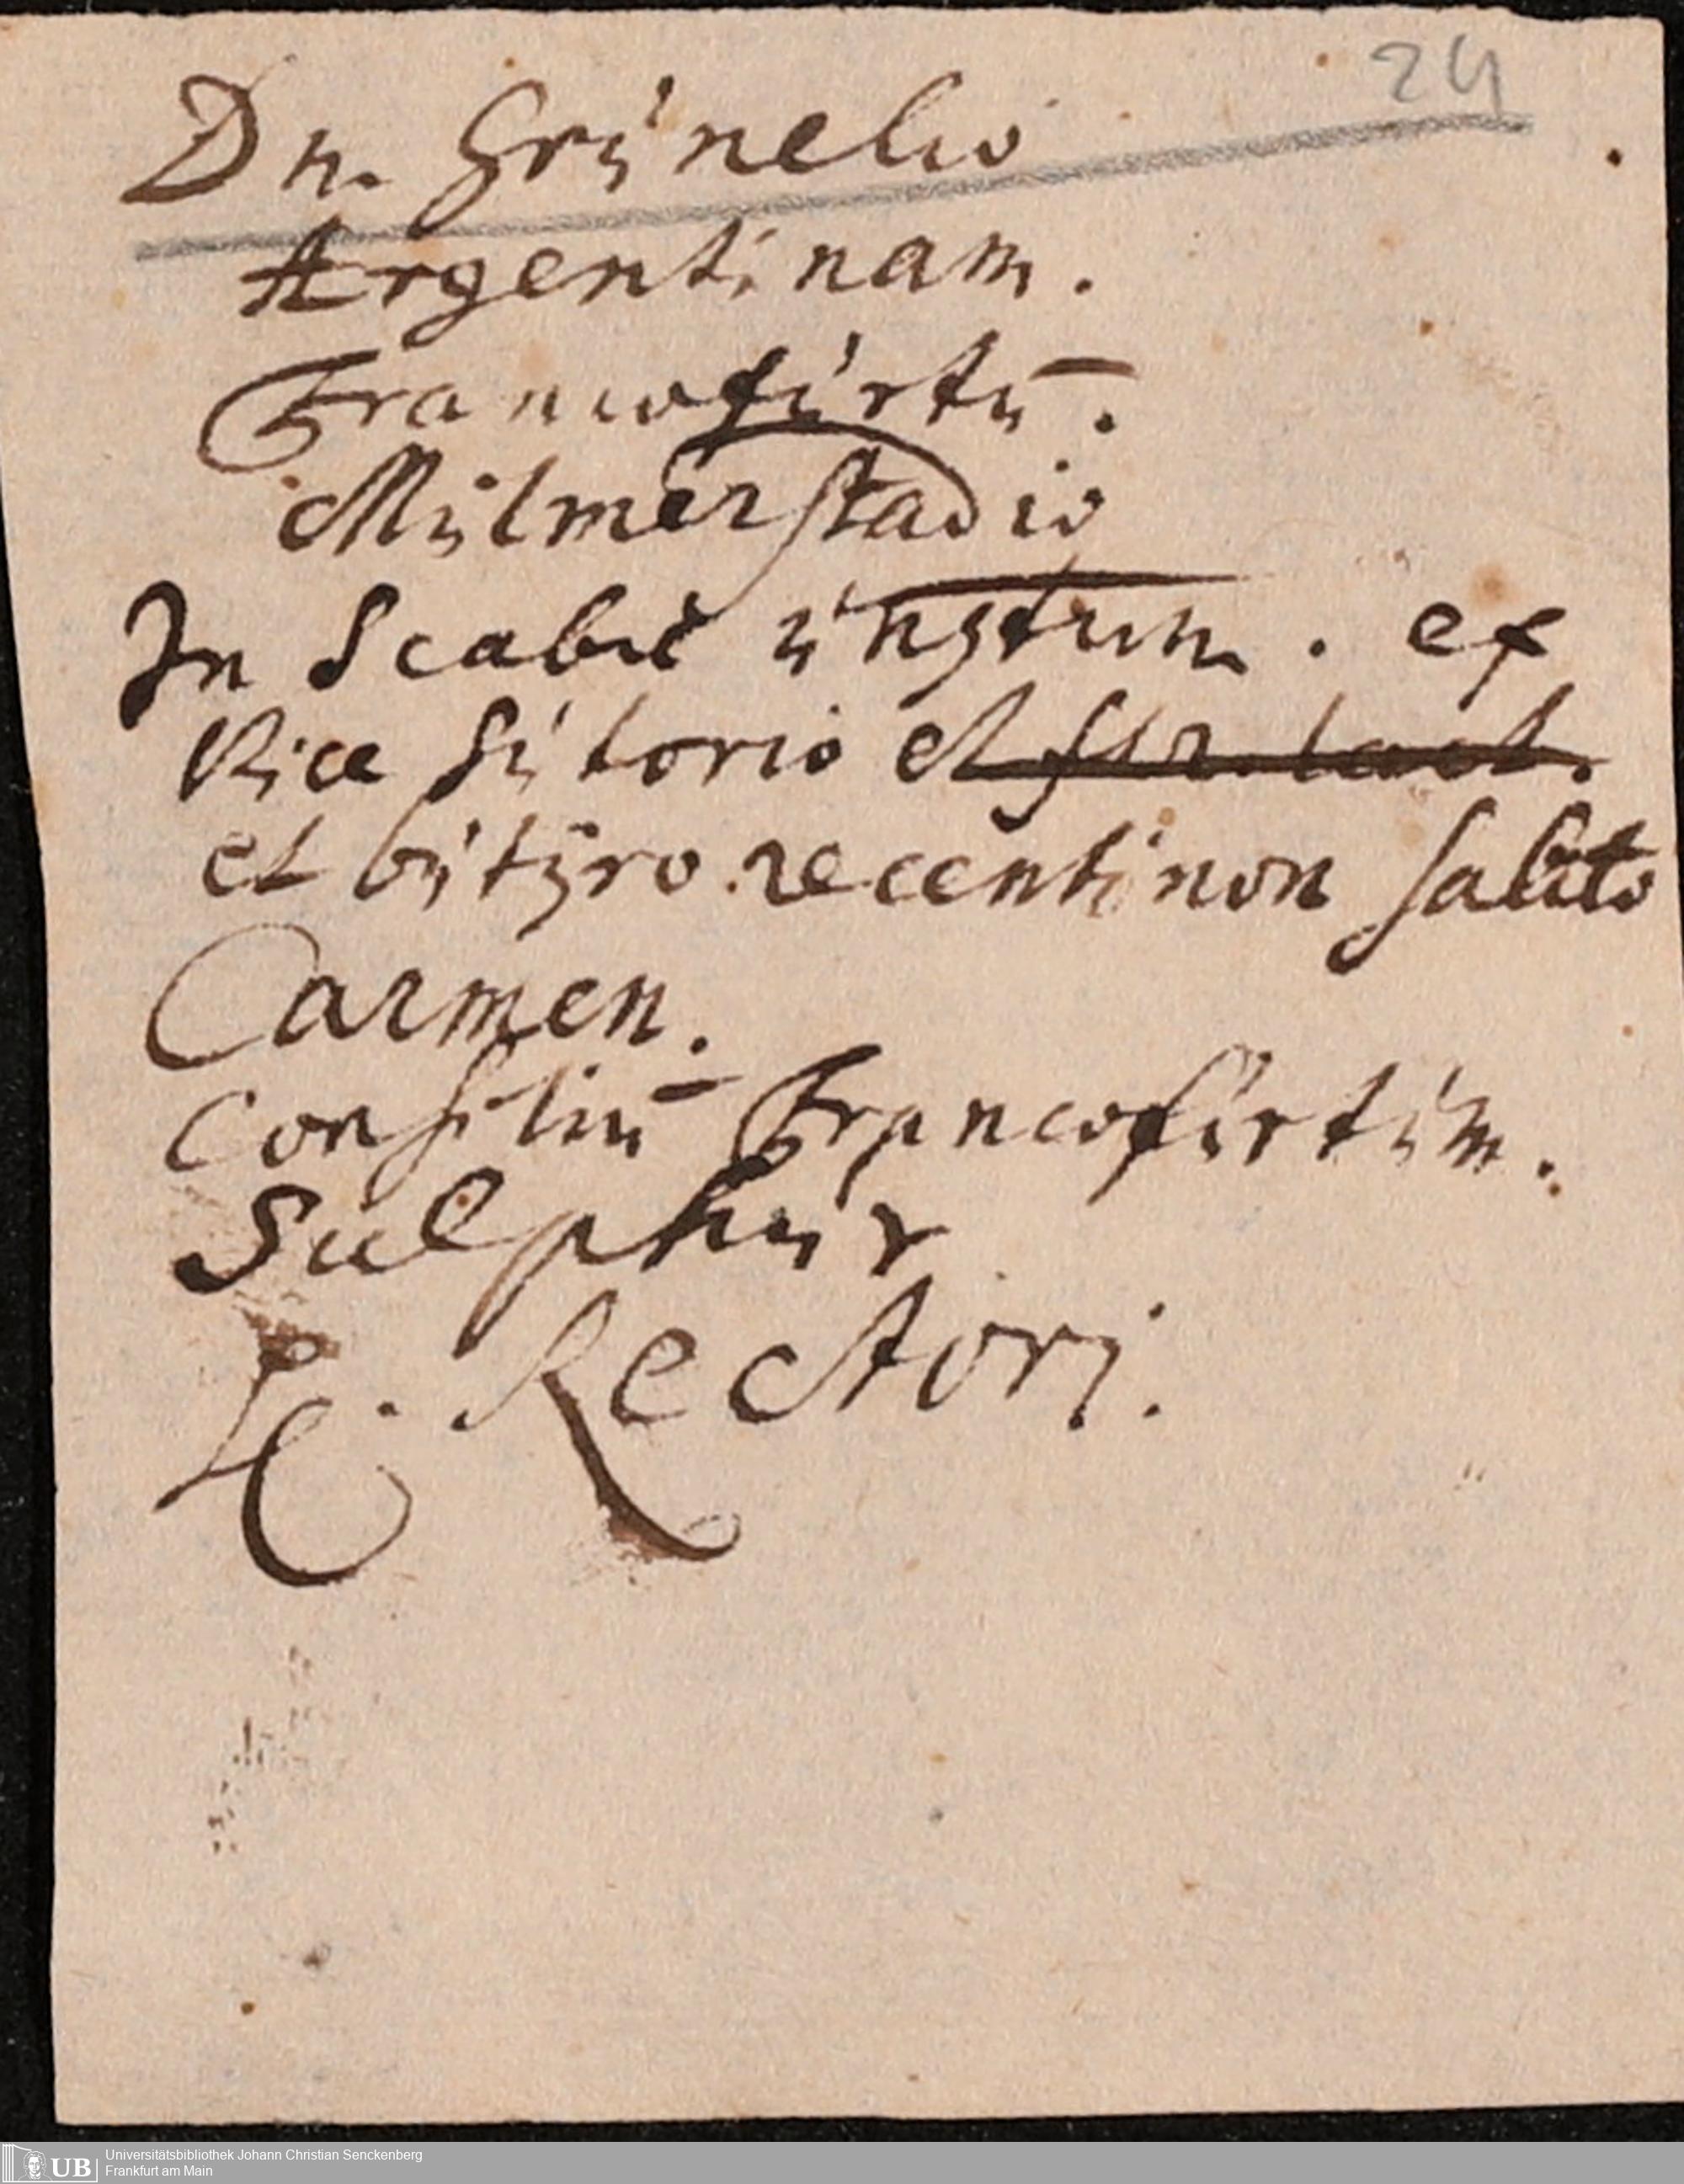 24
Dn. Grúnelio
Argentinam.
Francofúrtū.
Múlmerstadio
In Scabie ungtum. ex
Pice sútorio et flor. lact.
et bútÿro recenti non salito
Carmen.
Consiliū Francofúrtúm.
Sulphúr
Rectori.
Universitätsbibliothek Johann Christian Senckenberg
UB Frankfurt am Main